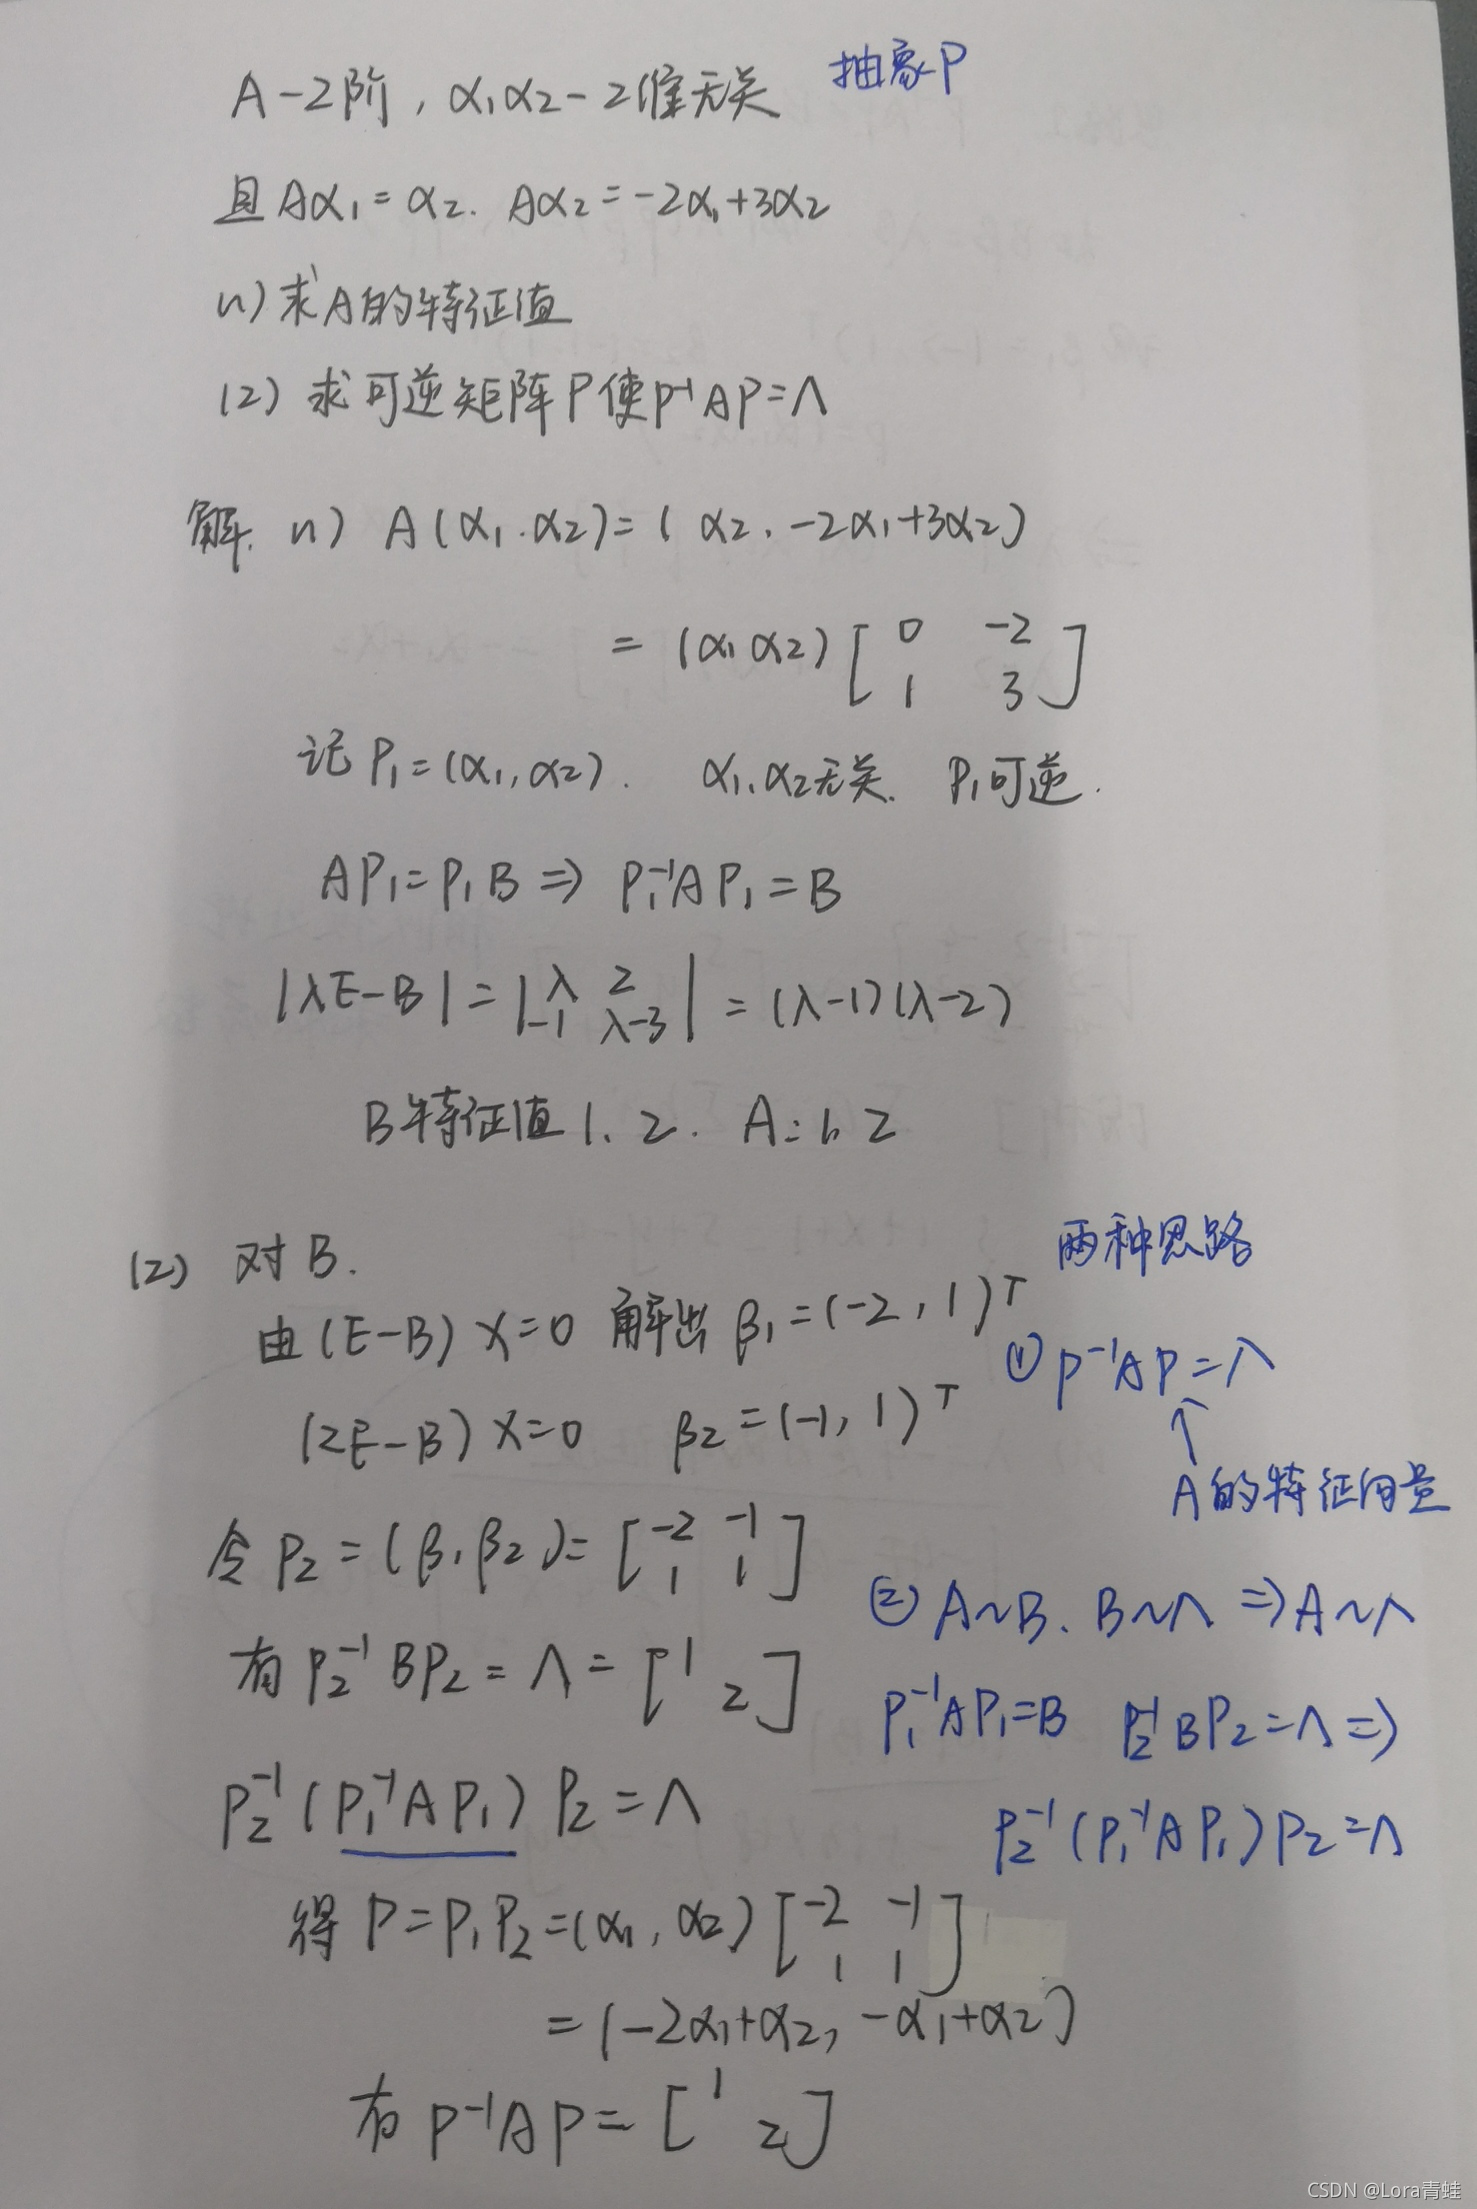 抽象P
A-2阶，α₁α₂-2维无关
且Aα₁=α₂. Aα₂=-2α₁+3α₂
(1)求A的特征值
(2)求可逆矩阵P使P⁻¹AP=Λ
解. (1) A(α₁.α₂)=(α₂.-2α₁+3α₂)
=(α₁α₂)[0 -2
1 3]
记P₁=(α₁,α₂). α₁.α₂无关. P₁可逆.
AP₁=P₁B⇒P₁⁻¹AP₁=B
|λE-B|=|λ 2
-1 λ-3|=(λ-1)(λ-2)
B特征值1、2. A:1、2
(2) 对B.
由(E-B)X=0 解出β₁=(-2,1)ᵀ
(2E-B)X=0 β₂=(-1,1)ᵀ
令P₂=(β₁β₂)=[-2 -1
1 1]
有P₂⁻¹BP₂=Λ=[1
2]
P₂⁻¹(P₁⁻¹AP₁)P₂=Λ
得P=P₁P₂=(α₁,α₂)[-2 -1
1 1]
=(-2α₁+α₂,-α₁+α₂)
有P⁻¹AP=[1
2]
两种思路
①P⁻¹AP=Λ
↑
A的特征向量
②A~B. B~Λ⇒A~Λ
P₁⁻¹AP₁=B P₂⁻¹BP₂=Λ⇒
P₂⁻¹(P₁⁻¹AP₁)P₂=Λ
CSDN @Lora青蛙